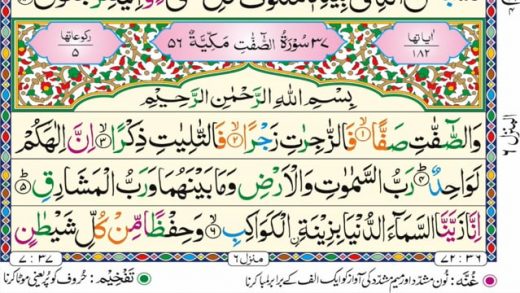 اٰیاتها ۱۸۲
۳۷ سُوْرَةُ الصّٰٓفّٰتِ مَكِّیَّةٌ ۵۶
ركوعاتها ۵
بِسْمِ اللّٰهِ الرَّحْمٰنِ الرَّحِیْمِ
وَالصّٰٓفّٰتِ صَفًّا ۙ﴿۱﴾ فَالزّٰجِرٰتِ زَجْرًا ۙ﴿۲﴾ فَالتّٰلِیٰتِ ذِكْرًا ۙ﴿۳﴾ اِنَّ اِلٰهَكُمْ
لَوَاحِدٌ ؕ﴿۴﴾ رَبُّ السَّمٰوٰتِ وَالْاَرْضِ وَمَا بَیْنَهُمَا وَرَبُّ الْمَشَارِقِ ؕ﴿۵﴾
اِنَّا زَیَّنَّا السَّمَآءَ الدُّنْیَا بِزِیْنَةِ ۣالْكَوَاكِبِ ۙ﴿۶﴾ وَحِفْظًا مِّنْ كُلِّ شَیْطٰنٍ
۷ : ۳۷
منزل ۶
۷۲ : ۳۶
غُنّه: نون مشدد اور میم مشدد کی آواز کو ایک الف کے برابر لمبا کرنا
تَفْخِیْم: حروف کو پُر یعنی موٹا کرنا
المنزل ۶